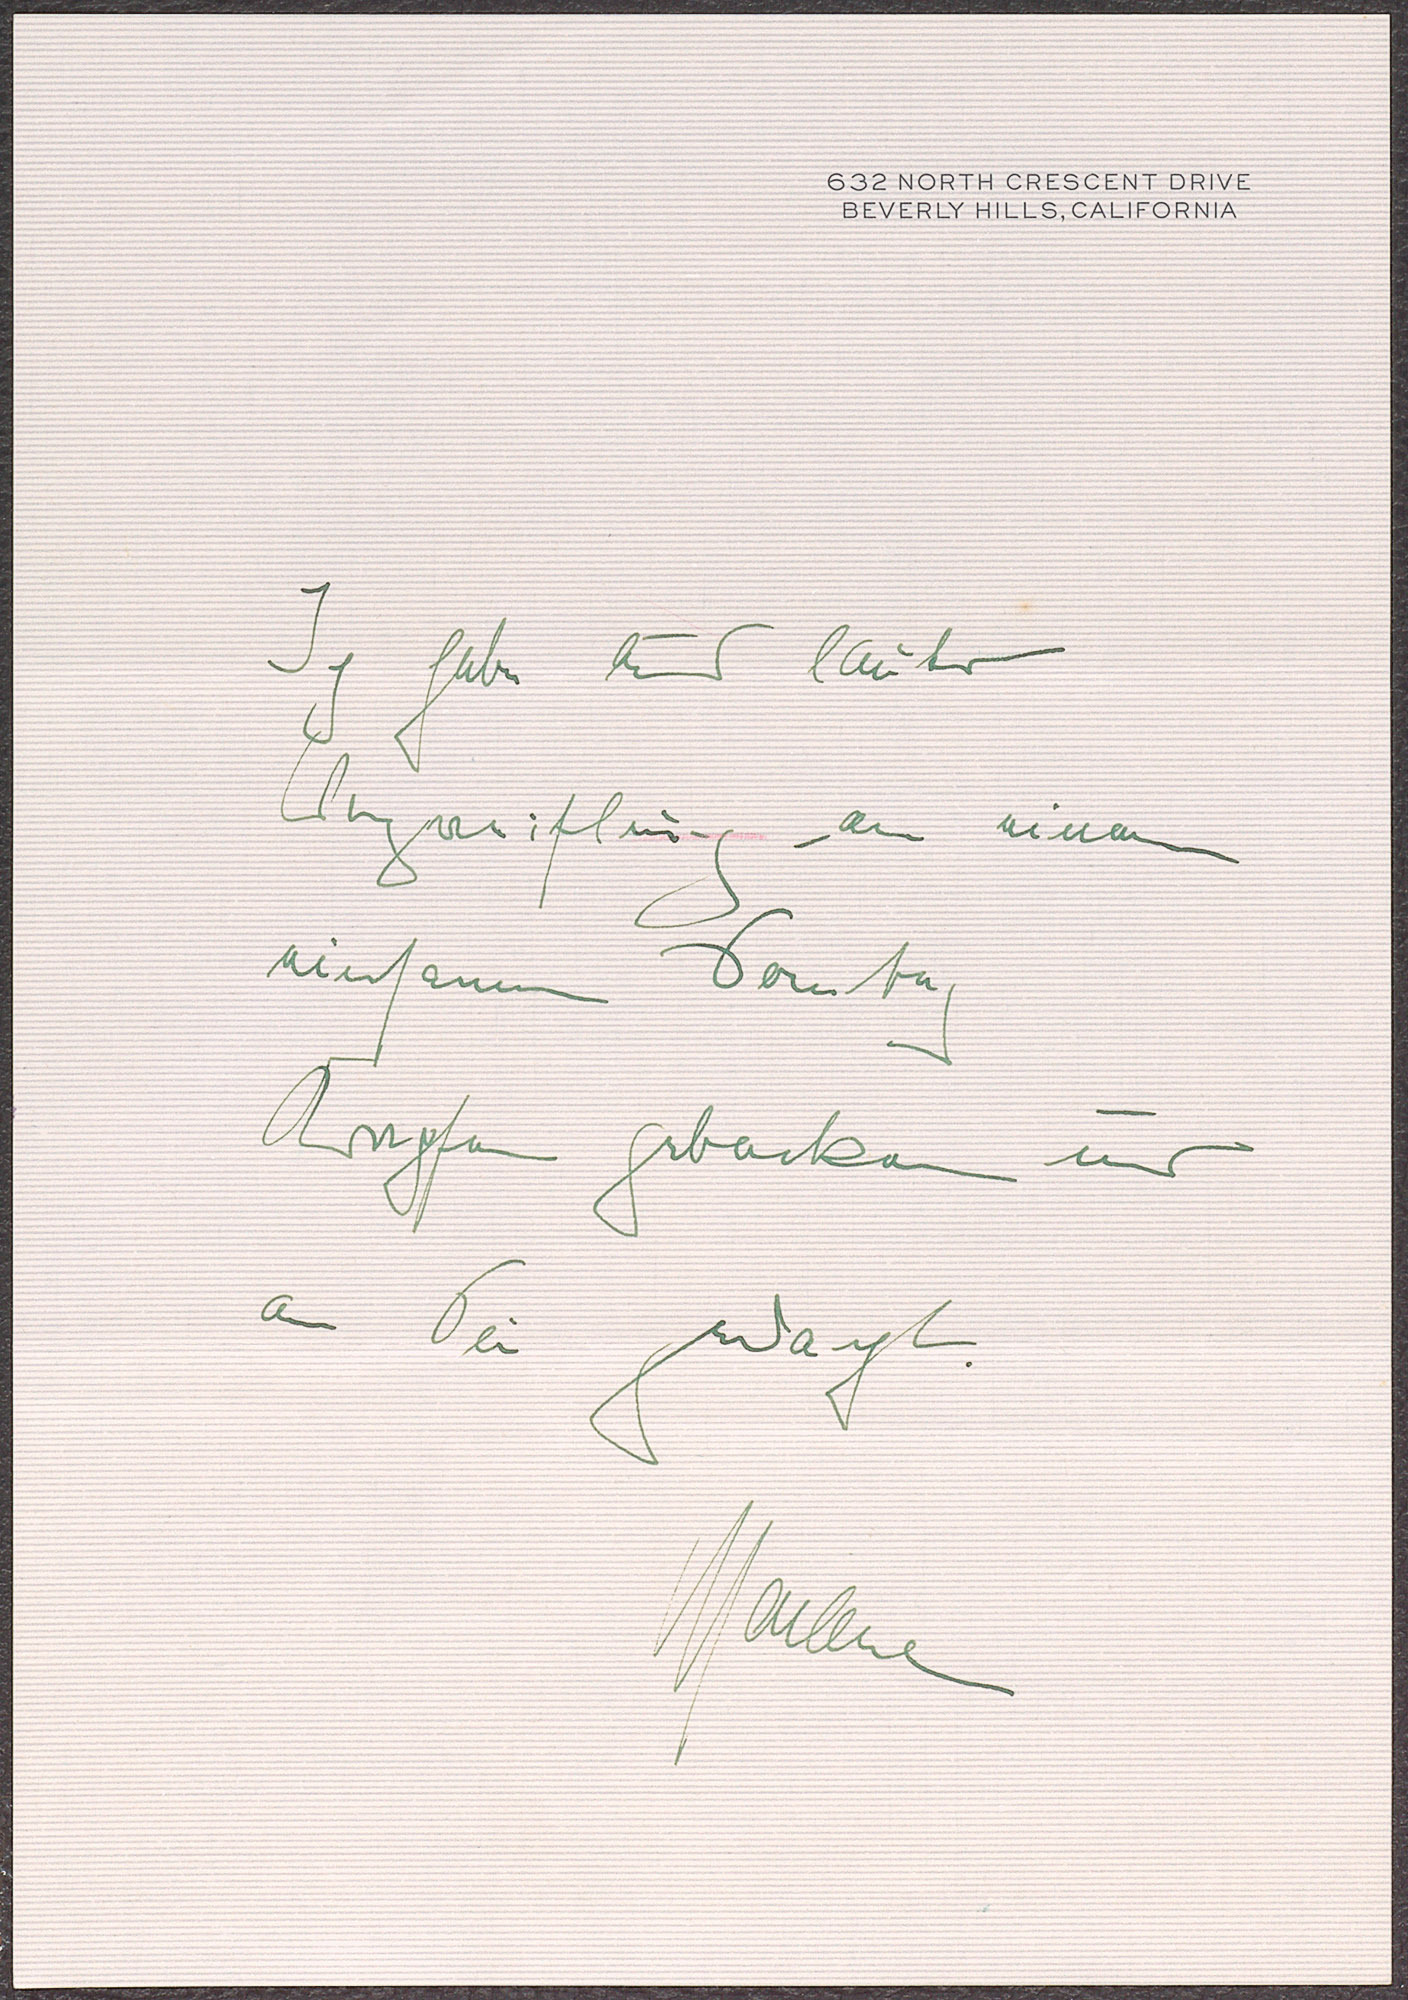 632 NORTH CRESCENT DRIVE
BEVERLY HILLS, CALIFORNIA
Ich habe aus lauter
Verzweiflung an einem
einsamen Sonntag
Krapfen gebacken und
an Sie gedacht.
Marlene